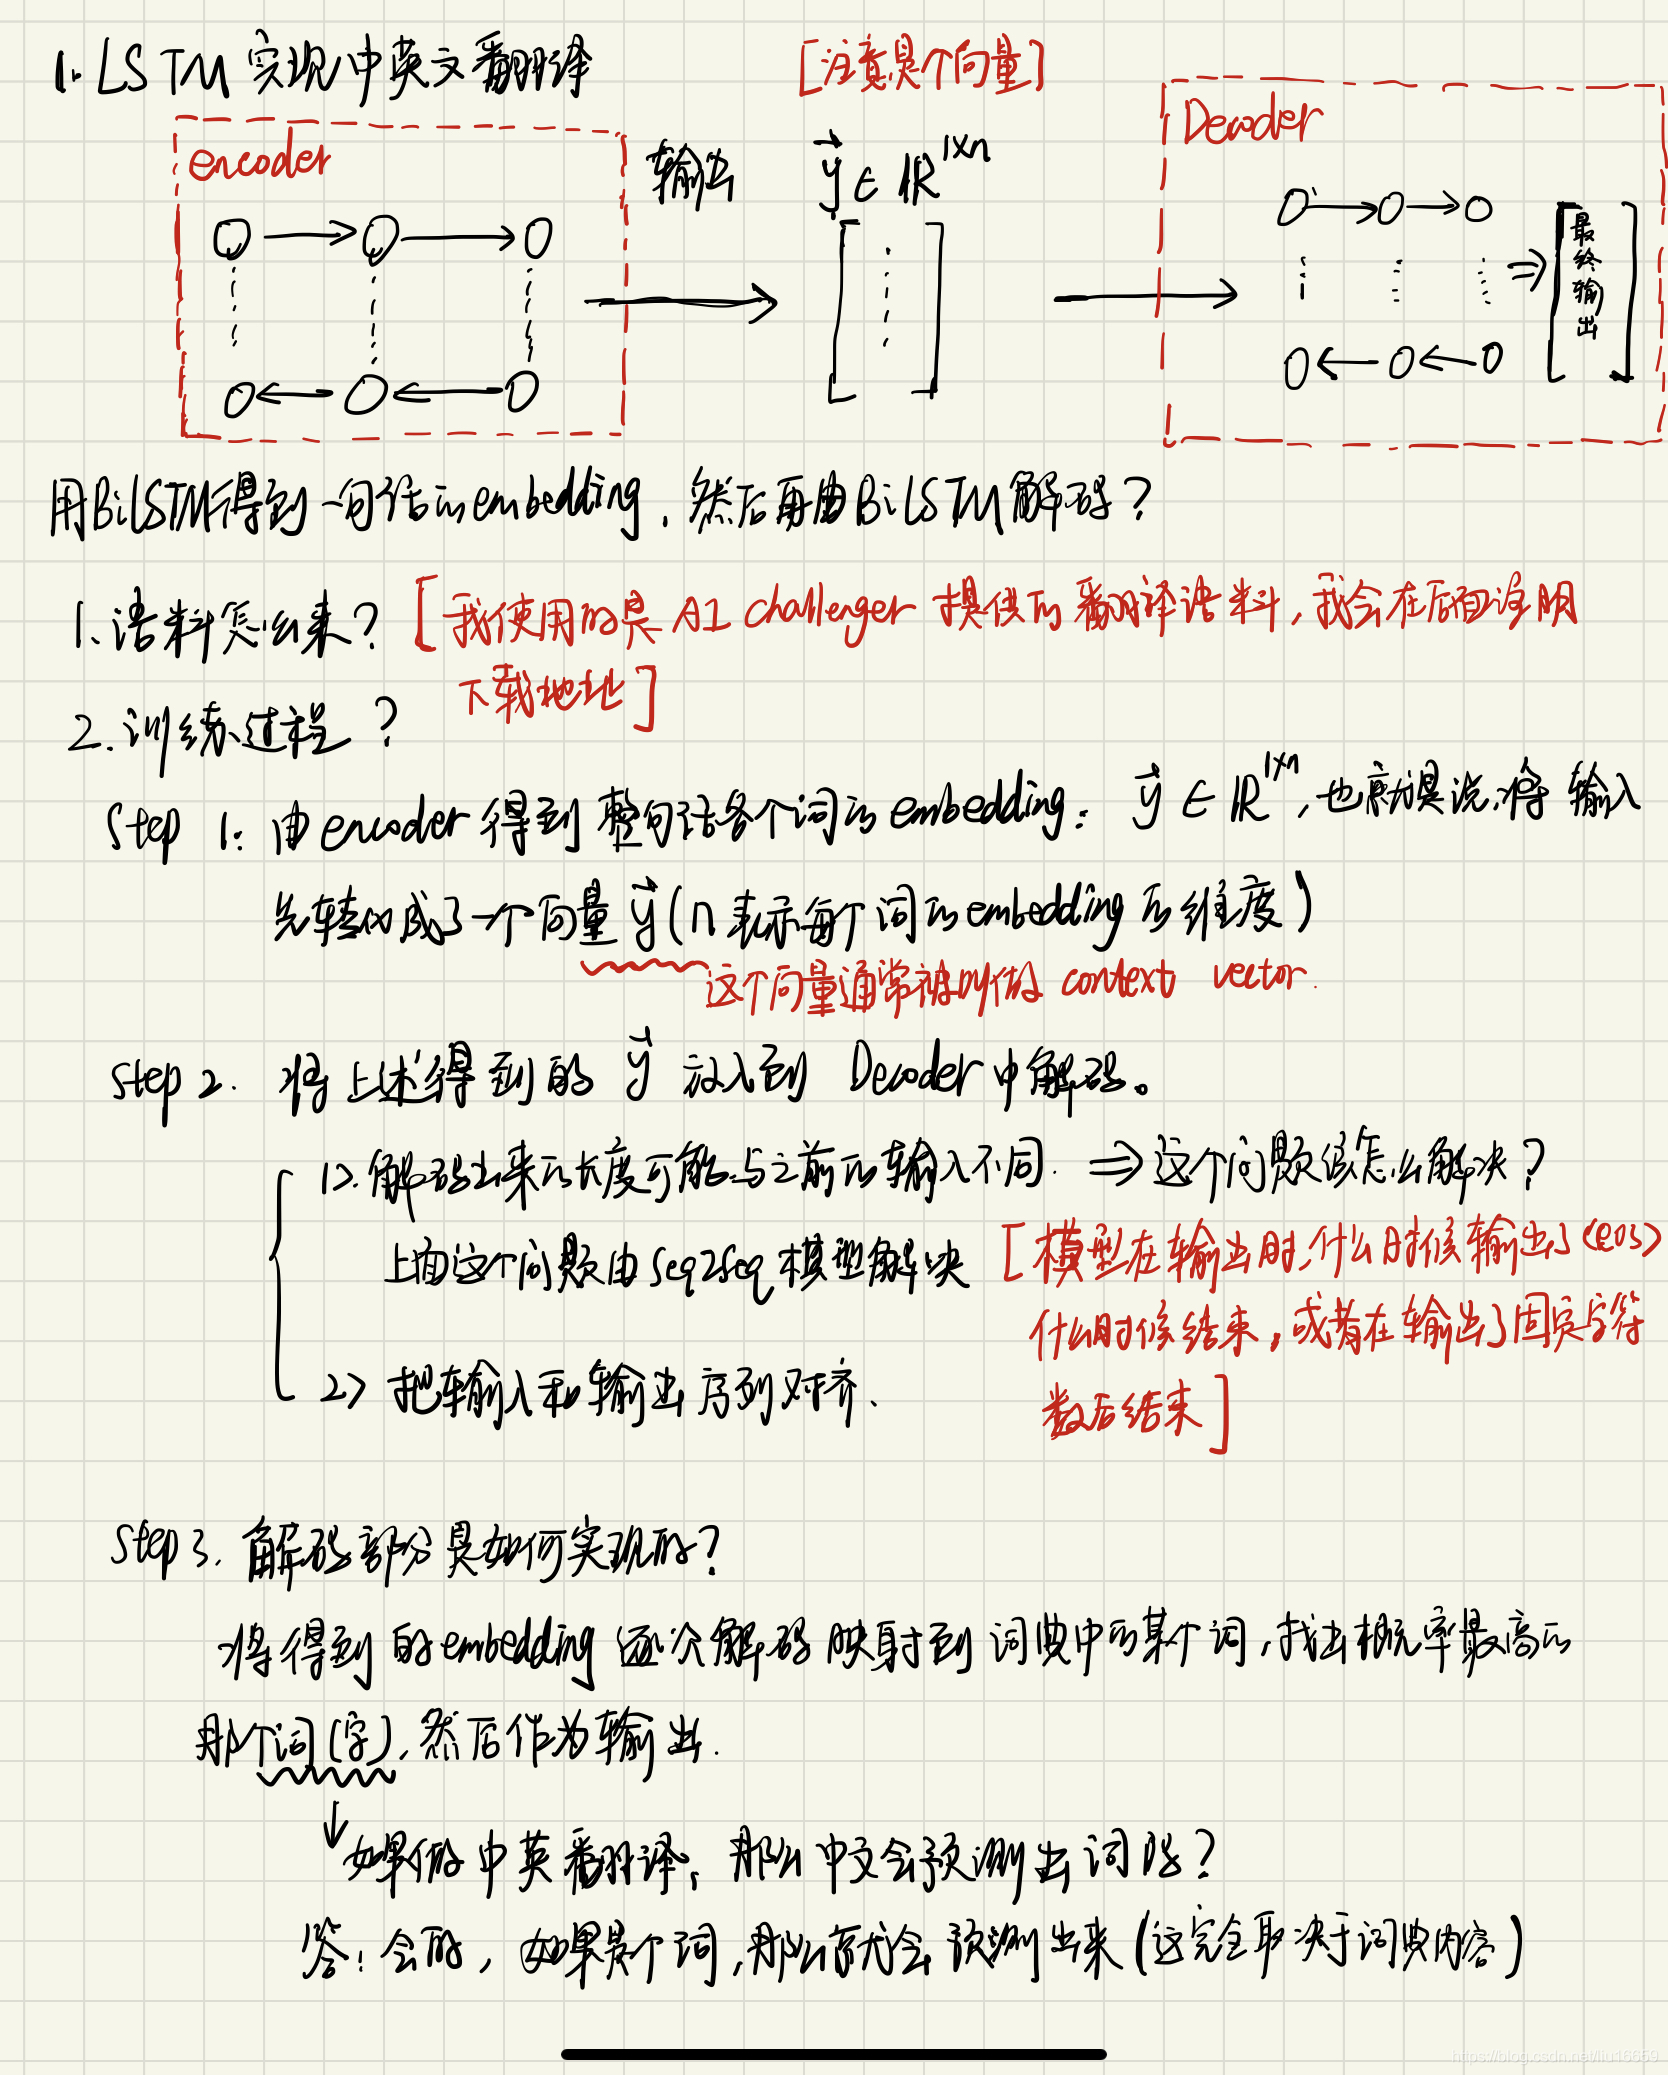 1. LSTM 实现中英文翻译
[注意是个向量]
encoder
输出
y ∈ R^{1×n}
Decoder
最终输出
用BiLSTM得到一句话的embedding，然后再由BiLSTM解码？
1、语料怎么来？ [我使用的是 AI challenger 提供的翻译语料，我会在后面说明
下载地址]
2.训练过程？
Step 1: 由encoder得到整句话各个词的embedding: y ∈ R^{1×n}，也就是说，将输入
先转化成了一个向量 y (n表示每个词的embedding的维度)
这个向量通常被叫做 context vector.
Step 2. 将上述得到的 y 放入到 Decoder中解码。
1>. 解码出来的长度可能与之前的输入不同. ⇒ 这个问题该怎么解决？
上面这个问题由Seq2Seq模型解决 [模型在输出时，什么时候输出了<eos>
什么时候结束，或者在输出了固定字符
数后结束]
2> 把输入和输出序列对齐、
Step 3. 解码部分是如何实现的？
将得到的embedding 逐次解码映射到词典中的某个词，找出概率最高的
那个词(字)，然后作为输出.
↓如果做中英翻译，那么中文会预测出词吗？
答：会的，如果是个词，那么就会预测出来 (这完全取决于词典内容)
https://blog.csdn.net/liu16659